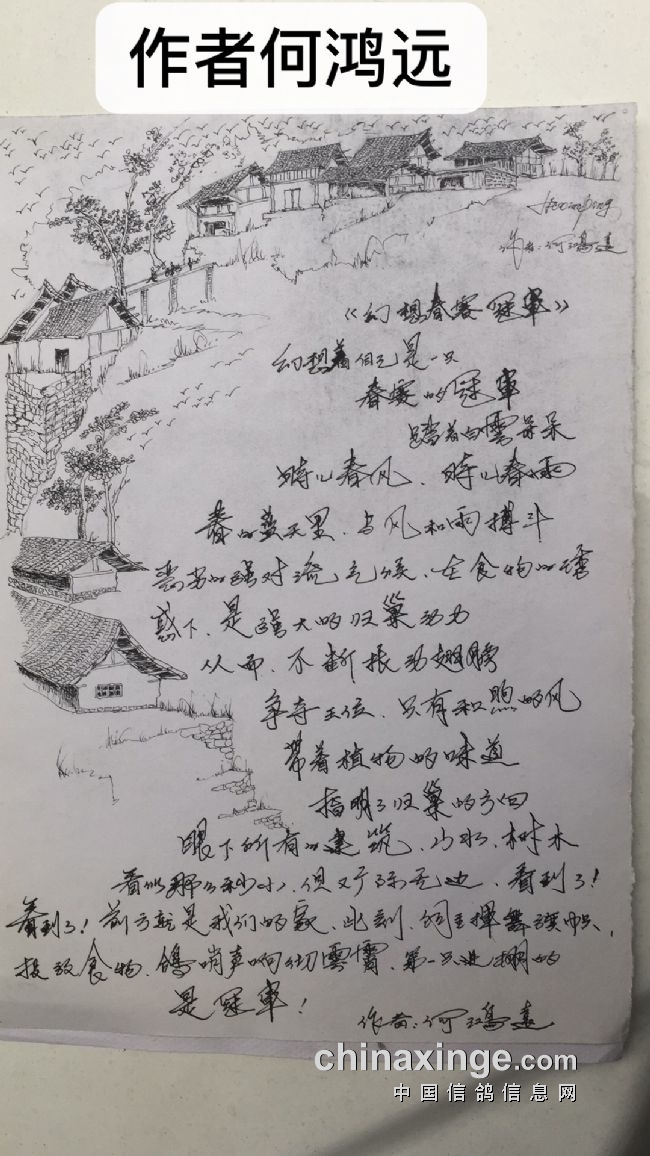 作者何鸿远
作者:何鸿远
《幻想春赛冠军》
幻想着自己是一只
春赛的冠军
踏着白雲朵朵
时儿春风、时儿春雨
春的蓝天里、与风和雨搏斗
的强对流气候、在食物的诱
惑下、是强大的归巢动力
从而、不断振动翅膀
争夺王位、只有和煦的风
带着植物的味道
指明了归巢的方向
眼下所有的建筑、山水、树木
看似那么秒小、但又广阔无边、看到了!
看到了!前方就是我们的家、此刻、饲主揮舞旗帜、
投放食物、鴿哨声响彻雲霄、第一只进棚的
是冠軍!
作者:何鸿远
chinaxinge.com
中国信鸽信息网